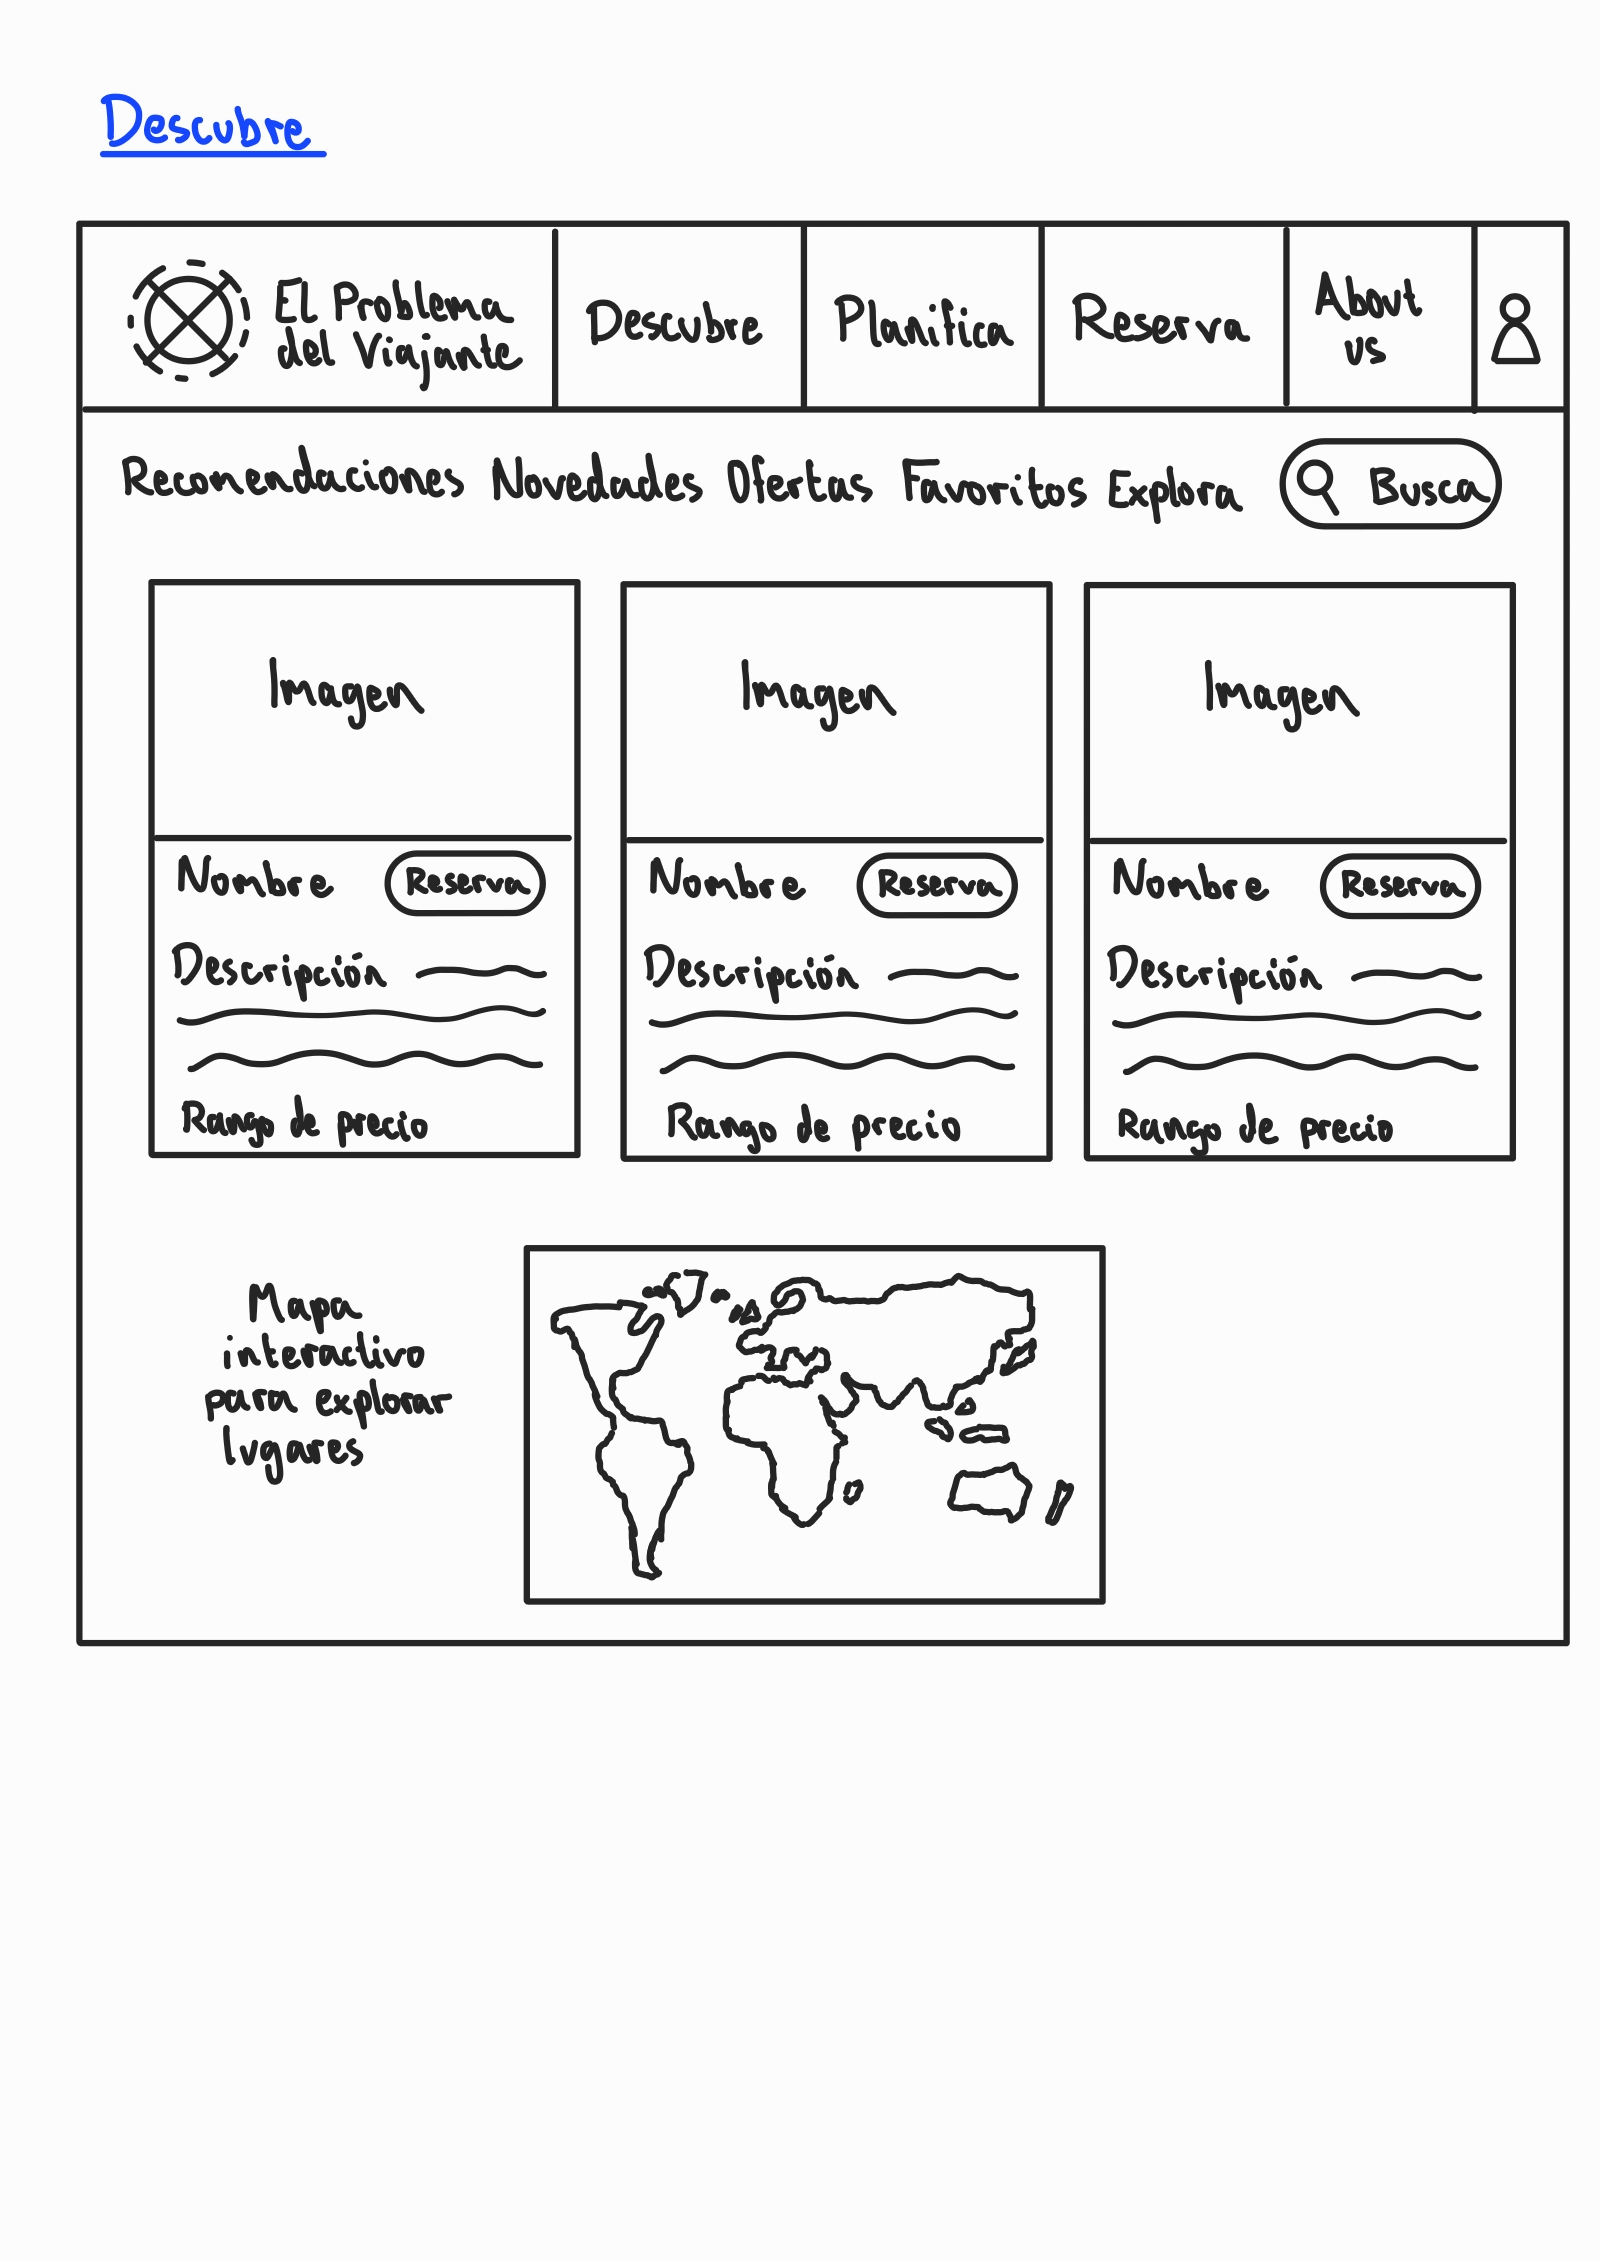 Descubre
El Problema
del Viajante
Descubre
Planifica
Reserva
About
us
Recomendaciones Novedades Ofertas Favoritos Explora
Busca
Imagen
Nombre
Reserva
Descripción
Rango de precio
Imagen
Nombre
Reserva
Descripción
Rango de precio
Imagen
Nombre
Reserva
Descripción
Rango de precio
Mapa
interactivo
para explorar
lugares